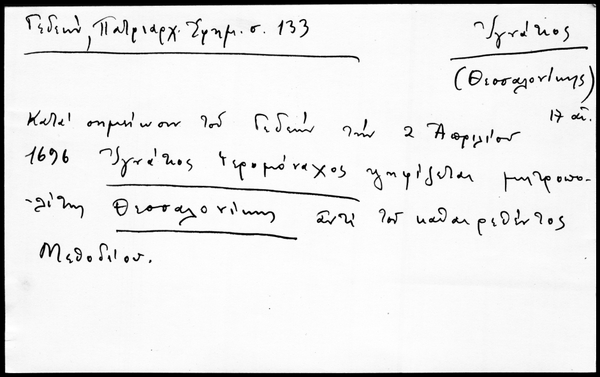 Γεδεών, Πατριαρχ. Ἐφημ. σ. 133
Ἰγνάτιος
(Θεσσαλονίκης)
17 αἰ.
Κατά σημείωσιν τοῦ Γεδεών τήν 2 Ἀπριλίου
1696 Ἰγνάτιος ἱερομόναχος ψηφίζεται μητροπο-
-λίτης Θεσσαλονίκης ἀντί τοῦ καθαιρεθέντος
Μεθοδίου.